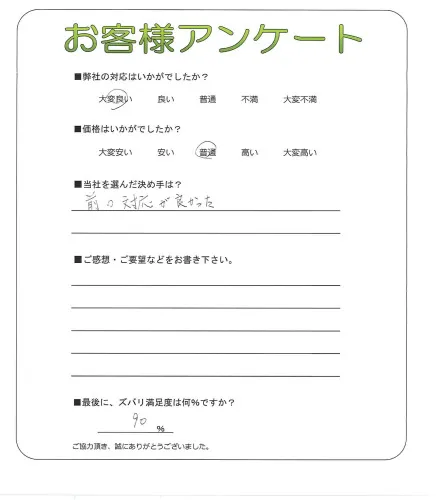 お客様アンケート
■弊社の対応はいかがでしたか？
大変良い 良い 普通 不満 大変不満
■価格はいかがでしたか？
大変安い 安い 普通 高い 大変高い
■当社を選んだ決め手は？
前の対応が良かった
■ご感想・ご要望などをお書き下さい。
■最後に、ズバリ満足度は何％ですか？
90 %
ご協力頂き、誠にありがとうございました。